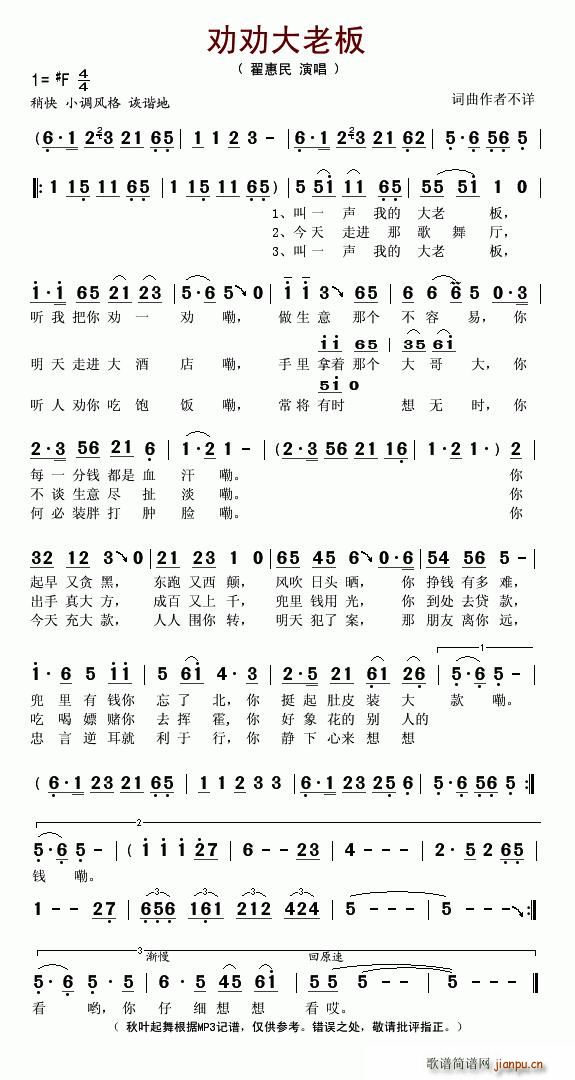 劝劝大老板
( 翟惠民 演唱 )
1= #F 4/4
稍快 小调风格 诙谐地
词曲作者不详
( 6·1 2 3 2 1 6 5 | 1 2 3 - | 6·1 2 3 2 1 6 2 | 5·6 5 6 5 |
1 1 5 1 1 6 5 | 1 1 5 1 1 6 5 ) | 5 5 1 1 1 6 5 | 5 5 5 1 1 0 |
1、叫一 声 我的 大老 板,
2、今天 走进 那 歌 舞 厅,
3、叫一 声 我的 大老 板,
1·1 6 5 2 1 2 3 | 5·6 5 0 | 1 1 3 6 5 | 6 6 6 5 0·3 |
听 我 把你 劝 一 劝 嘞, 做 生 意 那个 不 容 易, 你
1 1 6 5 | 3 5 6 1 |
明 天 走进 大 酒 店 嘞, 手 里 拿着 那个 大 哥 大, 你
5 1 0
听 人 劝你 吃 饱 饭 嘞, 常 将 有时 想 无 时, 你
2·3 5 6 2 1 6 | 1·2 1 - | (2·3 5 6 2 1 1 6 | 1·2 1·) 2 |
每 一 分钱 都是 血 汗 嘞。 你
不 谈 生意 尽 扯 淡 嘞。
何 必 装胖 打 肿 脸 嘞。 你
3 2 1 2 3 0 | 2 1 2 3 5 | 6 5 4 5 6 0·6 | 5 4 5 6 5 - |
起早 又贪 黑, 东跑 又西 颠, 风吹 日头 晒, 你 挣钱 有多 难,
出手 真大 方, 成百 又上 千, 兜里 钱用 光, 你 到处 去贷 款,
今天 充大 款, 人人 围你 转, 明天 犯了 案, 那 朋友 离你 远,
1
1·6 5 1 1 | 5 6 1 4·3 | 2·5 2 1 6 1 2 6 | 5·6 5 - |
兜 里 有 钱你 忘 了 北, 你 挺 起 肚皮 装 大 款 嘞。
吃 喝 嫖 赌你 去 挥 霍, 你 好 象 花的 别 人的
忠 言 逆 耳就 利 于 行, 你 静 下 心来 想 想
( 6·1 2 3 2 1 6 5 | 1 1 2 3 3 | 6·1 2 3 2 1 6 2 | 5·6 5 6 5 ) :‖
2
5·6 5 - | ( 1 1 1 2 7 | 6 - - 2 3 | 4 - - - | 2· 5 2 6 5 |
钱 嘞。
1 - - 2 7 | 6 5 6 1 6 1 2 1 2 4 2 4 | 5 - - - | 5 - - - ) :‖
3 渐慢 回原速
5·6 5 0 5 | 6 5 6 1 6 1 | 5 5 5 - - | 5 - - - ‖
看 哟, 你 仔 细 想 想 看 哎。
( 秋叶起舞根据MP3记谱，仅供参考。错误之处，敬请批评指正。)
歌谱简谱网
jianpu.cn